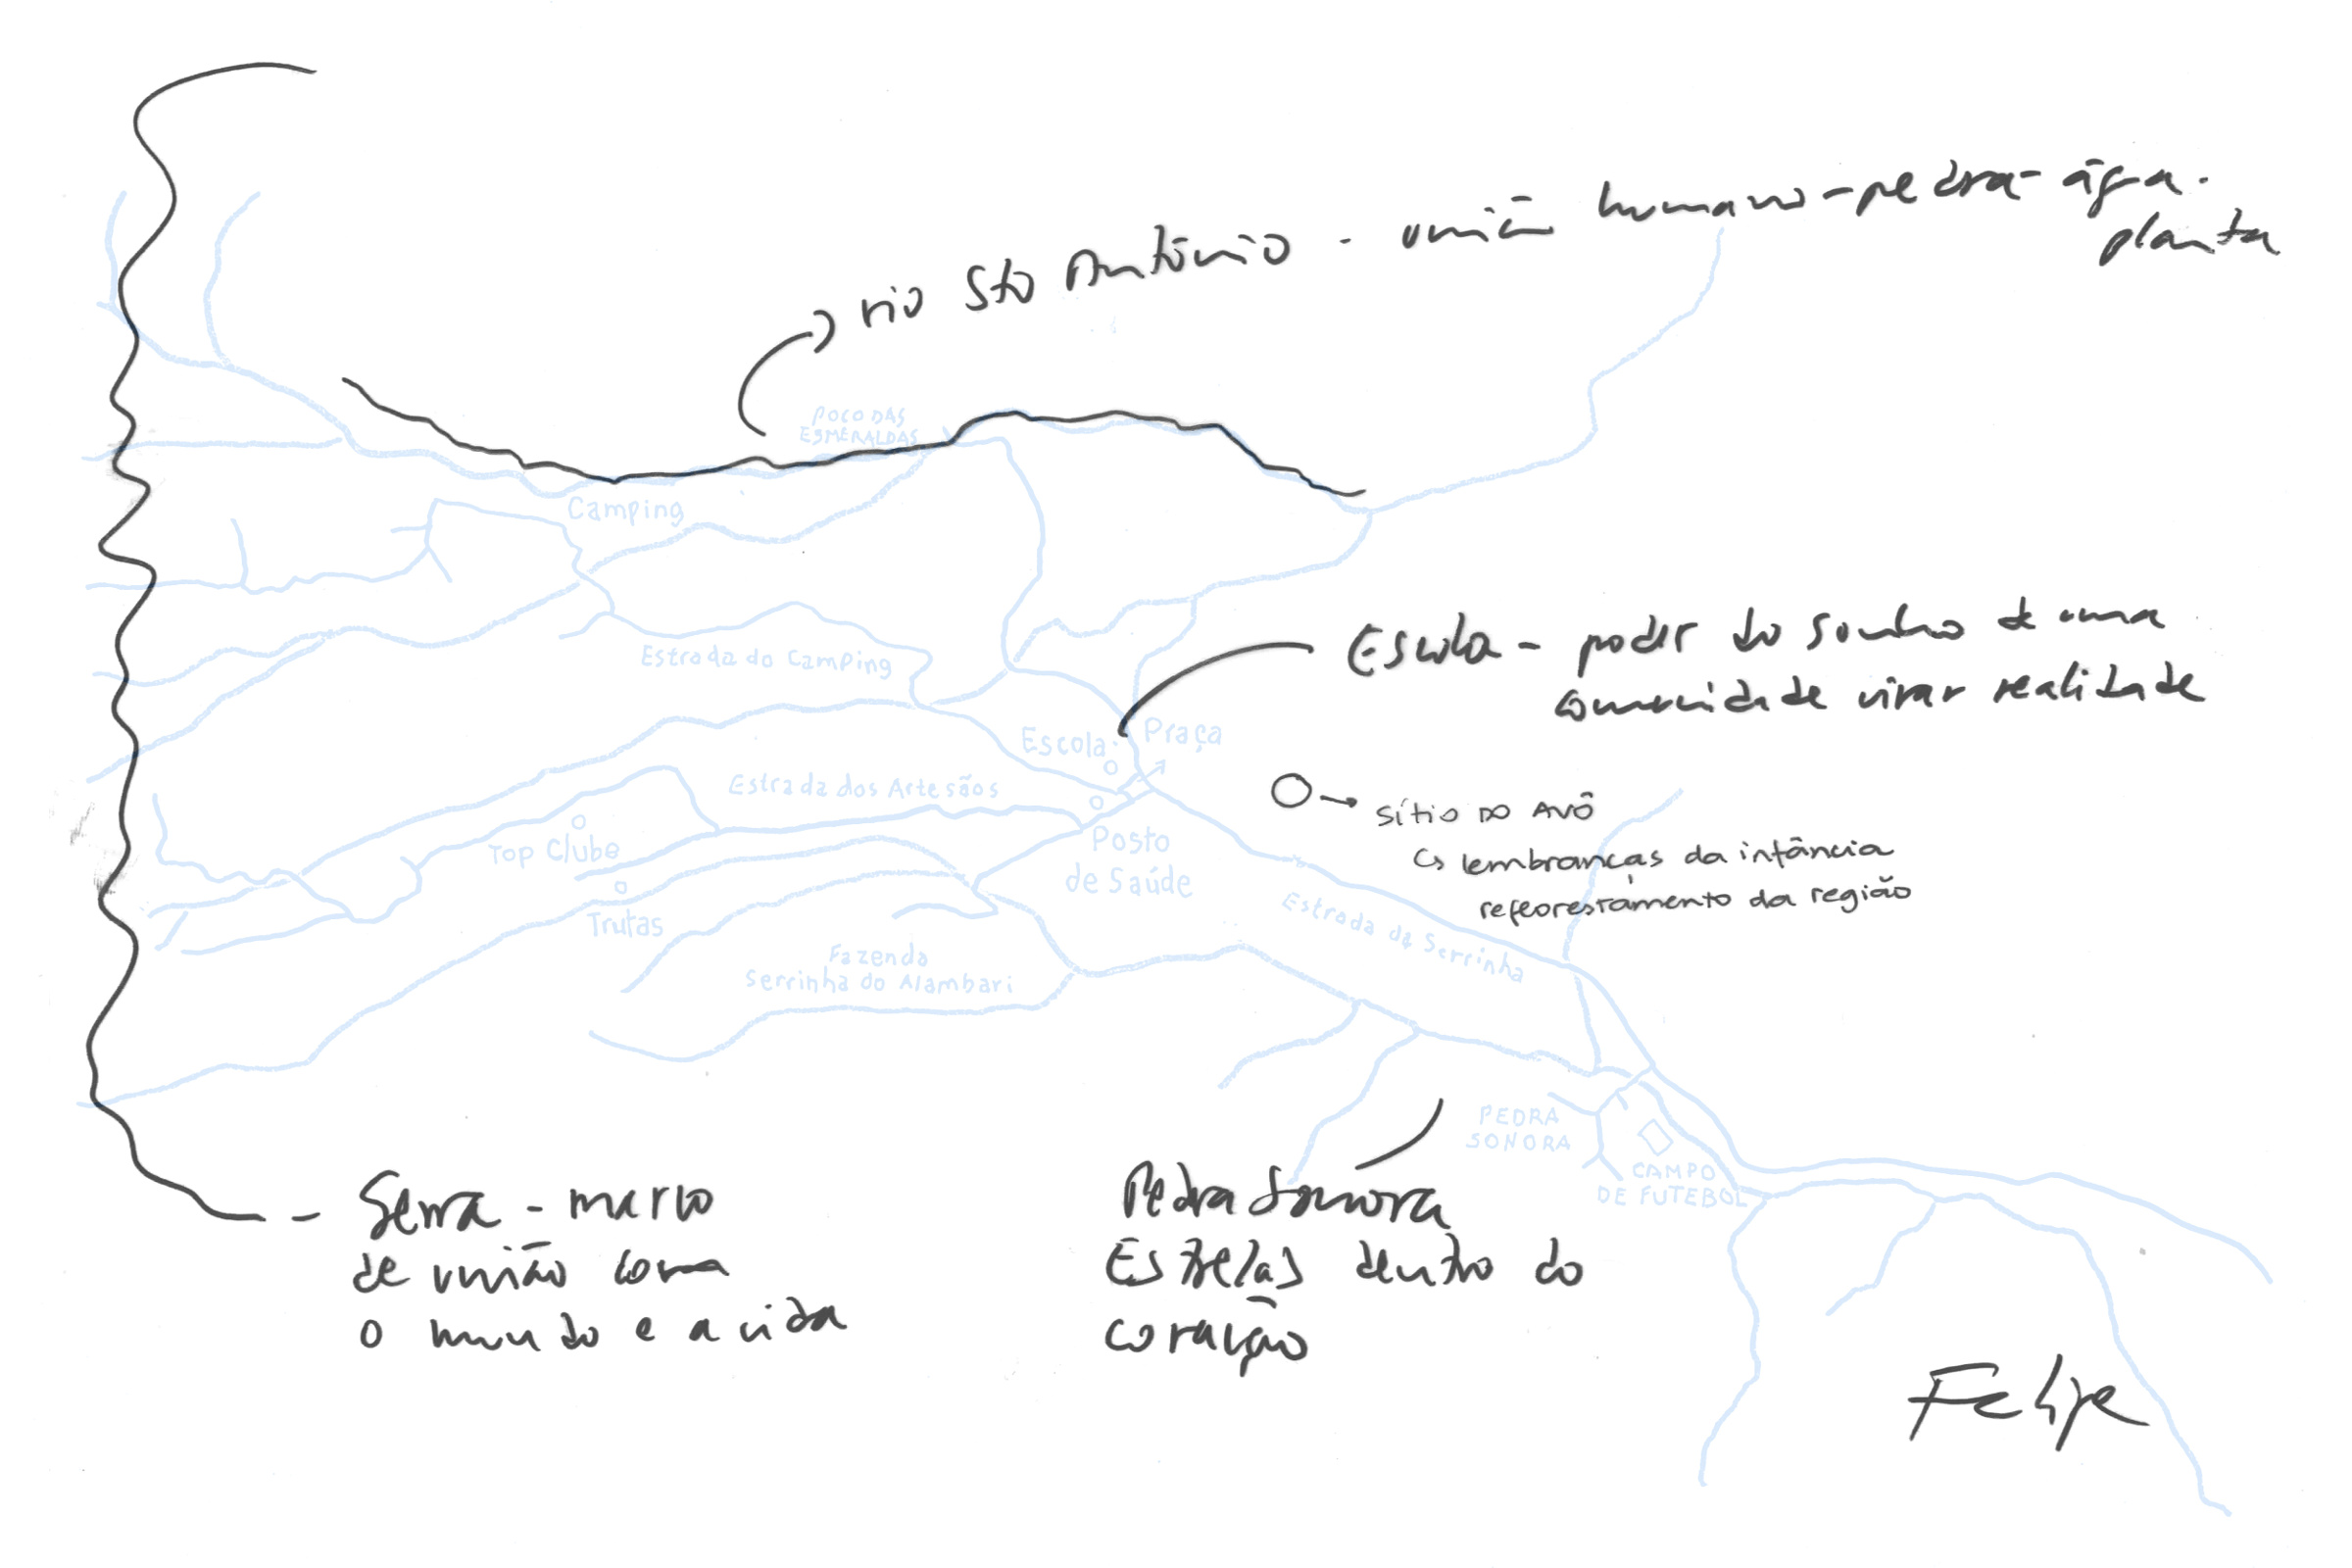 rio Sto Antônio - união humano-pedra-água-
planta
POÇO DAS
ESMERALDAS
Camping
Estrada do Camping
Escola - poder do sonho de uma
comunidade virar realidade
Escola
Praça
Estrada dos Artesãos
SÍTIO DO AVÔ
lembranças da infância
reflorestamento da região
Top Clube
Posto
de Saúde
Trutas
Estrada da Serrinha
Fazenda
Serrinha do Alambari
PEDRA
SONORA
CAMPO
DE FUTEBOL
Serra - marco
de união com
o mundo e a vida
Pedra Sonora
Estrelas dentro do
coração
Felipe